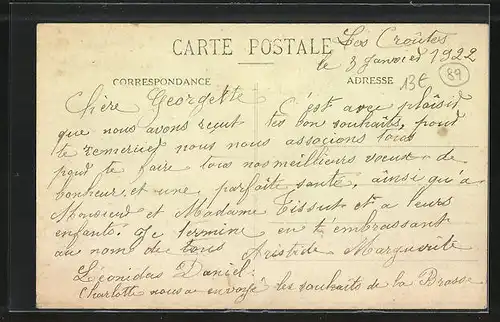 Les Croûtes
CARTE POSTALE
le 3 Janvier 1922
CORRESPONDANCE
ADRESSE
13€
89
Chère Georgette
C'est avec plaisir
que nous avons reçut tes bon souhaits, pour
te remercier nous nous associons tous
pour te faire tous nos meilleurs voeux de
bonheur et une parfaite santé, ainsi qu'a
Monsieur et Madame Tissut et a leurs
enfants. Je termine en t'embrassant
au nom de tous Aristide Marguerite
Léonidas Daniel.
Charlotte nous a envoyé les souhaits de la Brosse